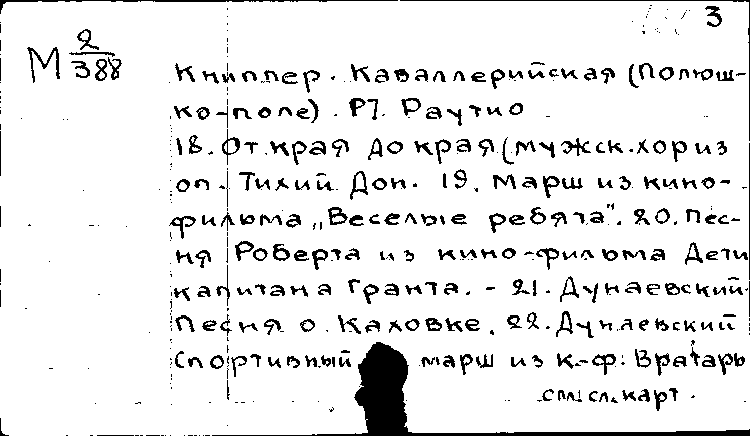 3
М 2/388
Книппер. Каваллерийская (Полюш-
ко-поле). РЛ. Раутио
18. От края до края (мужск. хор из
оп. Тихий Дон. 19. Марш из кино-
фильма „Веселые ребята". 20. Пес-
ня Роберта из кино-фильма Дети
капитана Гранта. - 21. Дунаевский.
Песня о Каховке. 22. Дунаевский
Спортивный марш из к-ф: Вратарь
см. сл. карт.